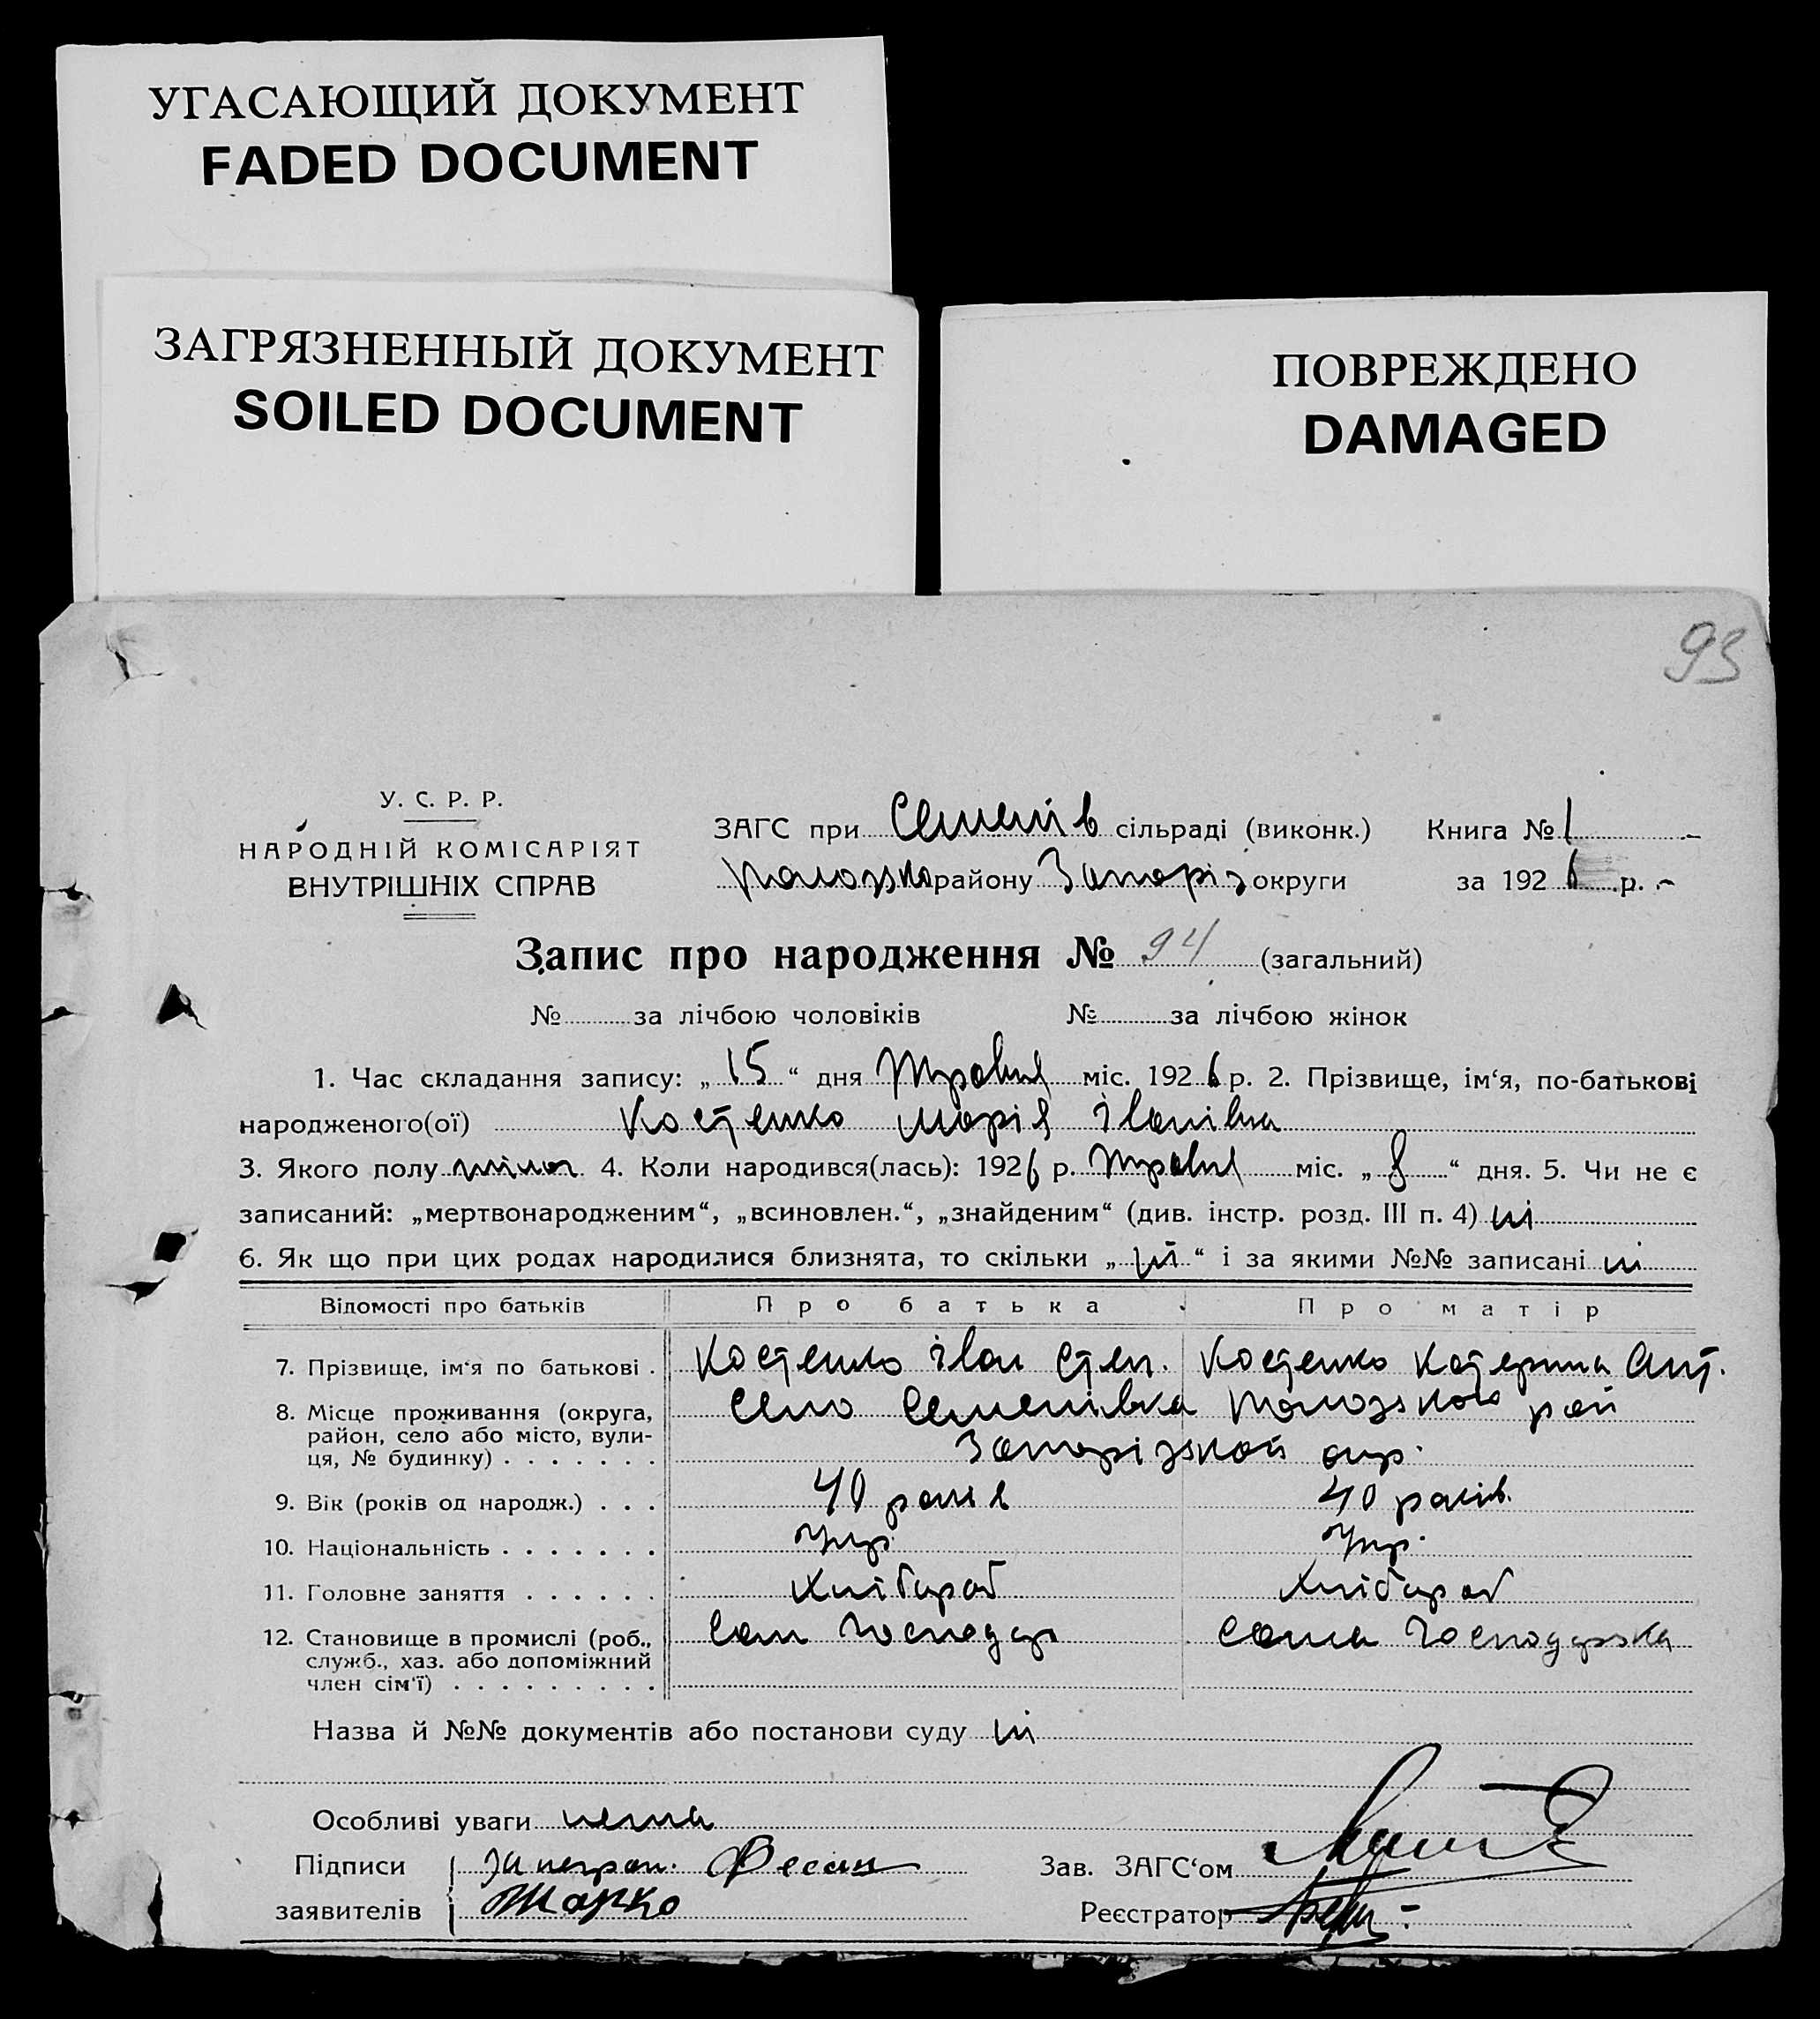 УГАСАЮЩИЙ ДОКУМЕНТ
FADED DOCUMENT
ЗАГРЯЗНЕННЫЙ ДОКУМЕНТ
SOILED DOCUMENT
ПОВРЕЖДЕНО
DAMAGED
93
У. С. Р. Р.
НАРОДНІЙ КОМІСАРІЯТ
ВНУТРІШНІХ СПРАВ
ЗАГС при Семенів сільраді (виконк.) Книга № 1
Пологзко району Запоріз округи за 1926 р.
Запис про народження № 94 (загальний)
№ за лічбою чоловіків № за лічбою жінок
1. Час складання запису: „15“ дня Травня міс. 1926 р. 2. Прізвище, ім‘я, по-батькові
народженого(ої) Костенко Марія Іванівна
3. Якого полу жіноч. 4. Коли народився(лась): 1926 р. Травня міс. „8“ дня. 5. Чи не є
записаний: „мертвонародженим“, „всиновлен.“, „знайденим“ (див. інстр. розд. III п. 4) ні
6. Як що при цих родах народилися близнята, то скільки „ні“ і за якими №№ записані ні
Відомості про батьків Про батька Про матір
7. Прізвище, ім‘я по батькові . Костенко Іван Степ. Костенко Катерина Ант.
8. Місце проживання (округа, район, село або місто, вулиця, № будинку) . . . . . . . село Семенівка Пологзкого рай
Запорізской окр.
9. Вік (років од народж.) . . . 40 років 40 років.
10. Національність . . . . . . . Укр. Укр.
11. Головне заняття . . . . . . Хлібороб Хлібороб
12. Становище в промислі (роб., служб., хаз. або допоміжний член сім‘ї) . . . . . . . . . Сам господар сама господарзка
Назва й №№ документів або постанови суду ні
Особливі уваги нема
Підписи за неграм. Фесан Зав. ЗАГС‘ом
заявителів Жарко Реєстратор